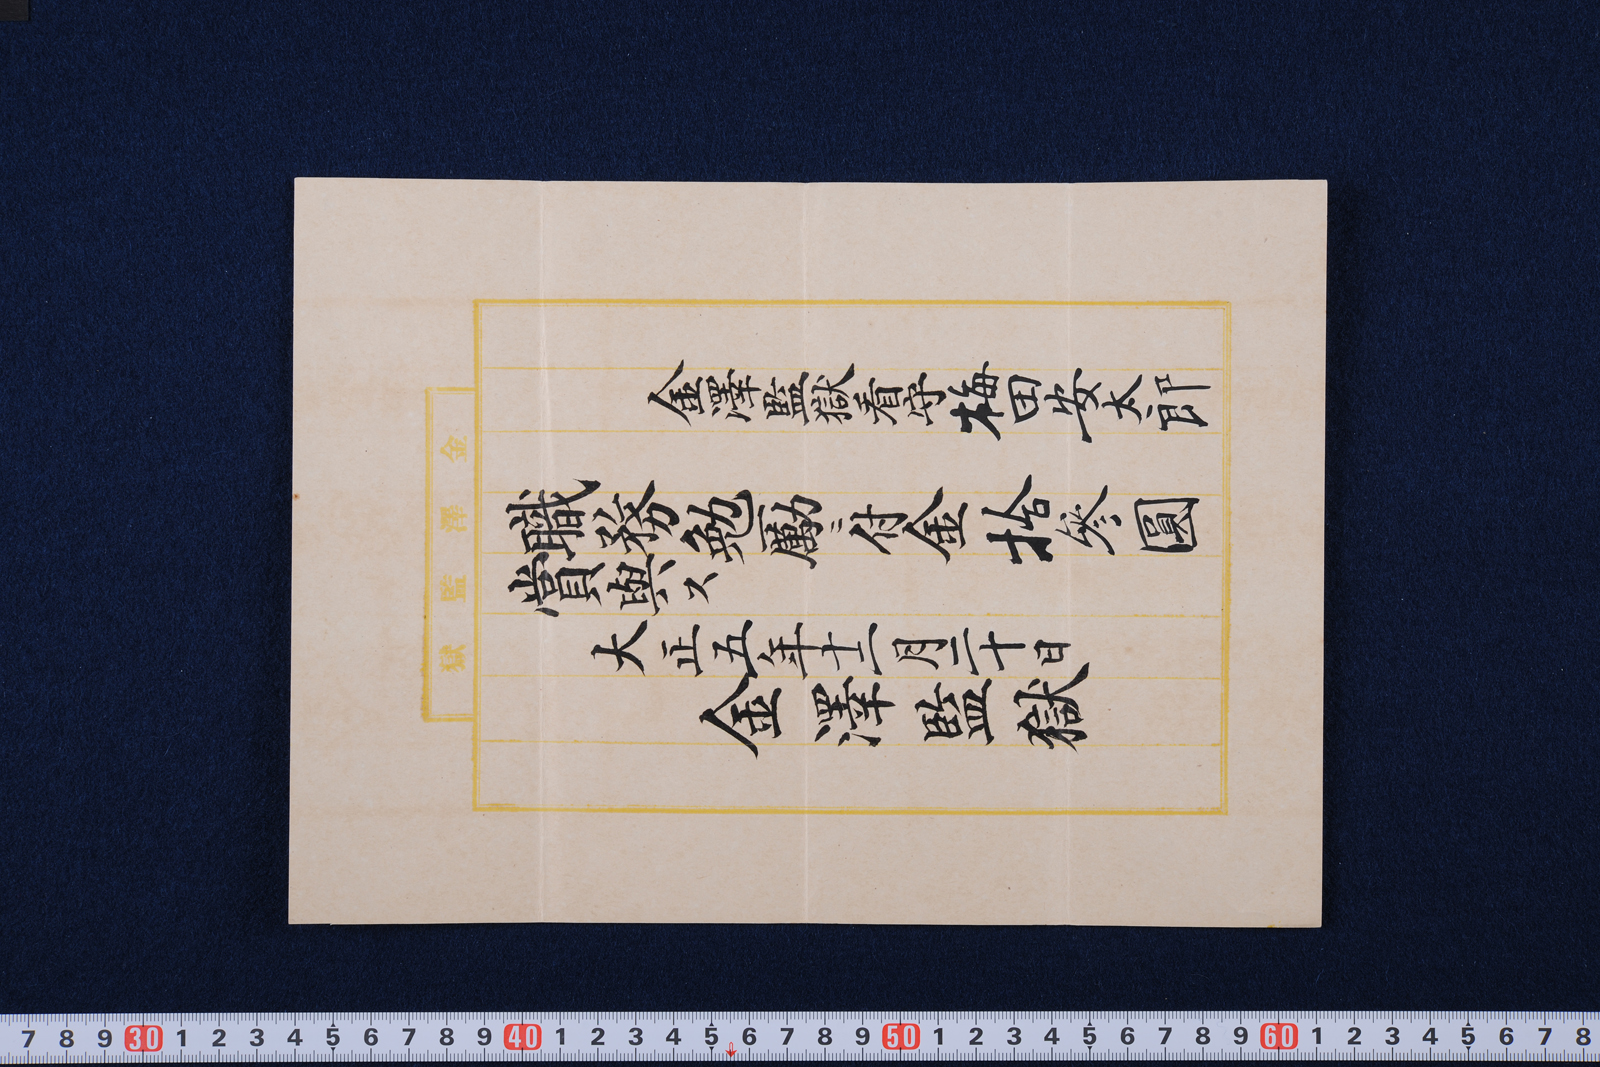 金澤監獄看守梅田安太郎
職務勉勵ニ付金拾参圓
賞與ス
大正五年十二月二十日
金澤監獄
金澤監獄
7 8 9 30 1 2 3 4 5 6 7 8 9 40 1 2 3 4 5 6 7 8 9 50 1 2 3 4 5 6 7 8 9 60 1 2 3 4 5 6 7 8